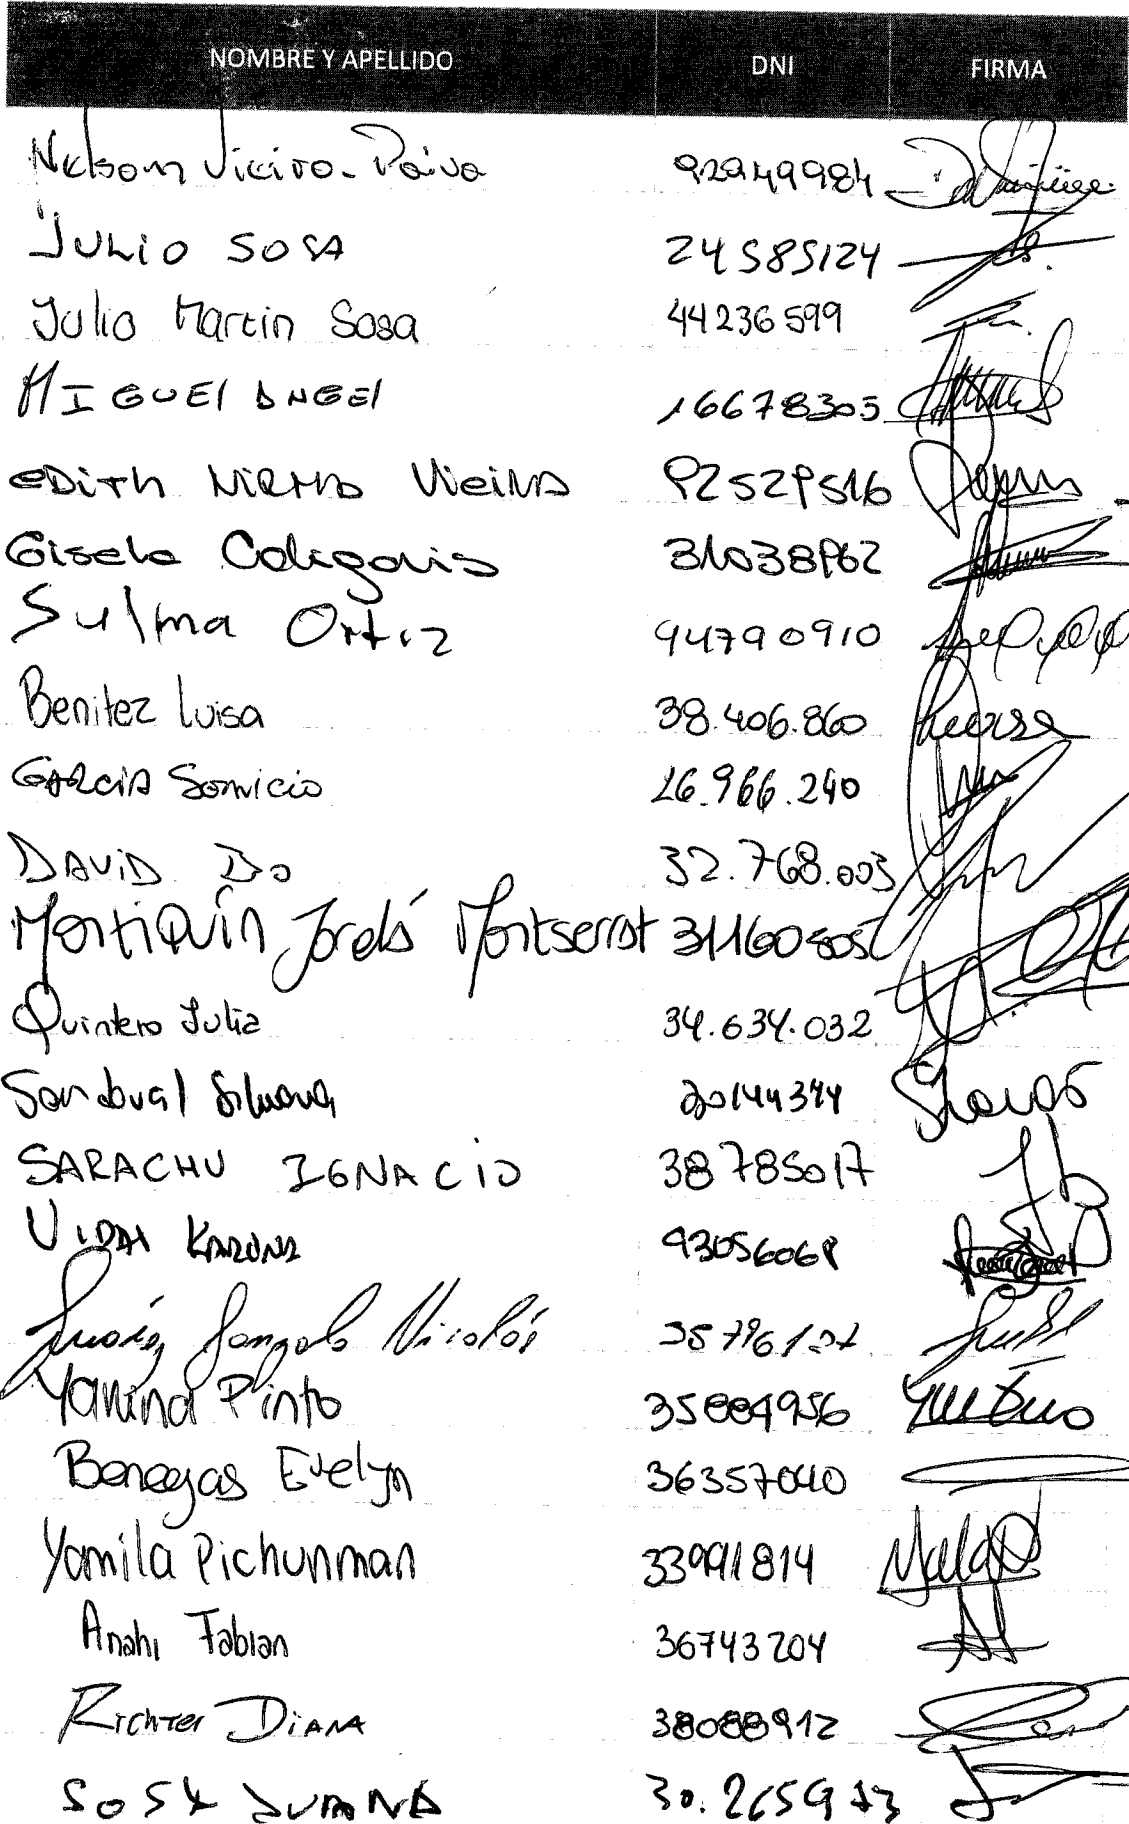 NOMBRE Y APELLIDO DNI FIRMA
Nelson Vieira-Paiva 92949984
JULIO SOSA 24585124
Julio Martin Sosa 44236599
MIGUEL ANGEL 16678305
EDITH MIRTHA Vieira 92529516
Gisela Caligaris 31038962
Sulma Ortiz 94790910
Benitez Luisa 38.406.860
GARCIA 26.966.240
DAVID 32.768.003
Jordá Montserrat
Quintero Julia 34.634.032
Sandoval Silvana 20144344
SARACHU IGNACIO 38785017
VIDAL 93056068
Nicolás
Yanina Pinto 35884956
Benegas Evelyn 36357040
Yamila Pichunman 33991814
Anahi Fabian 36743204
Richter DIANA 38088912
SOSA JUANA 30.265973